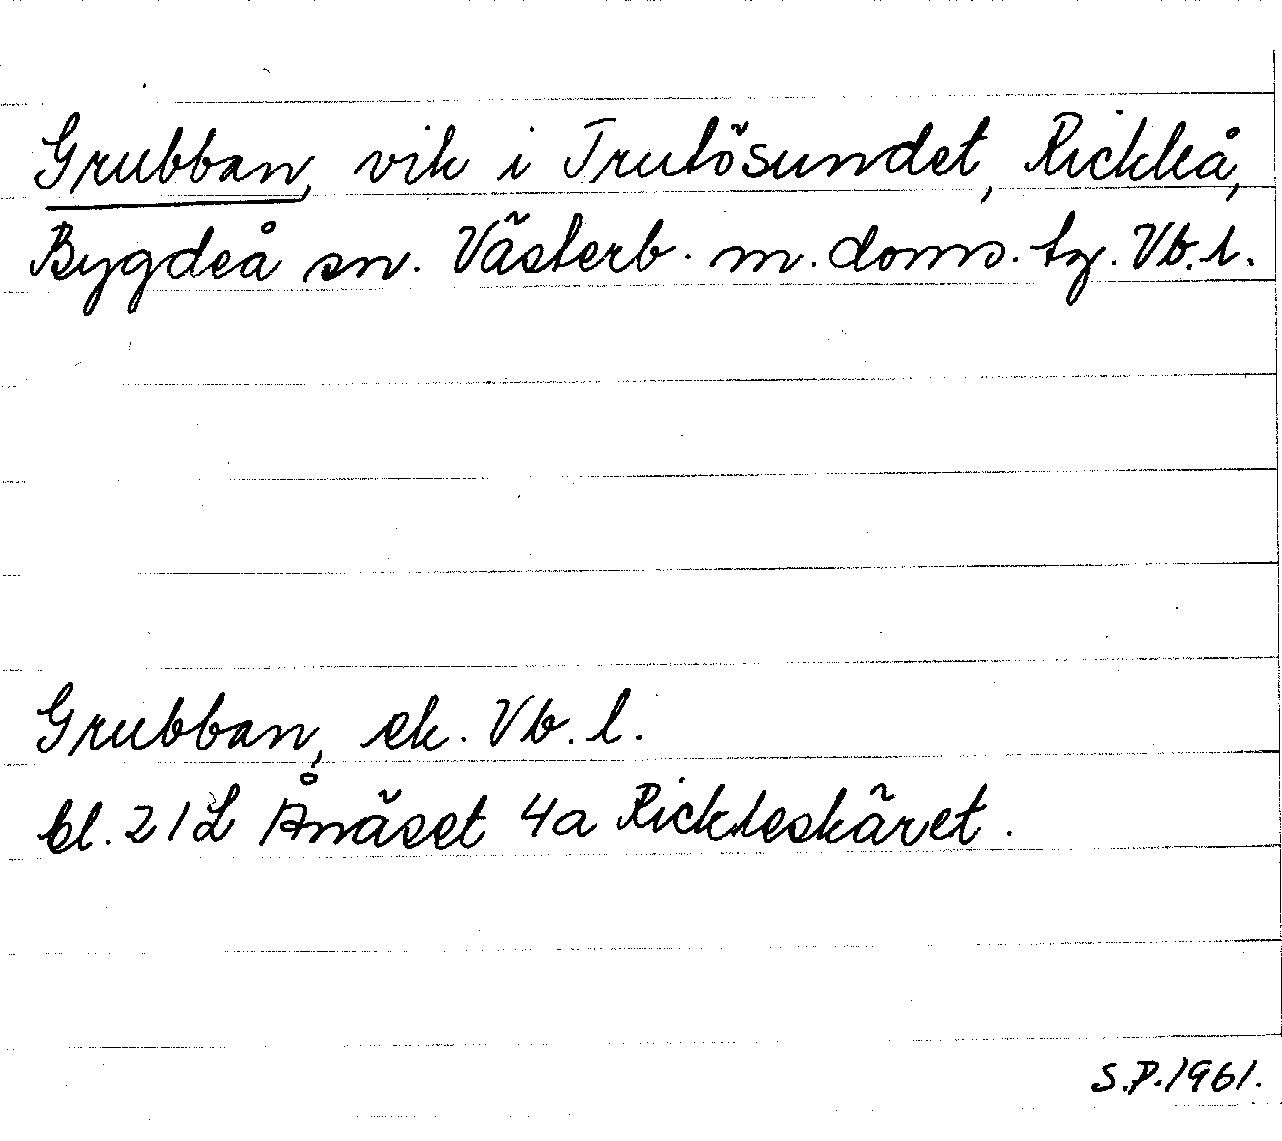 Grubban, vik i Trutösundet, Rickleå,
Bygdeå sn. Västerb. m. doms. tg. Vb. l.
Grubban, ek. Vb. l.
bl. 21L Ånäset 4a Rickleskäret.
S.P. 1961.